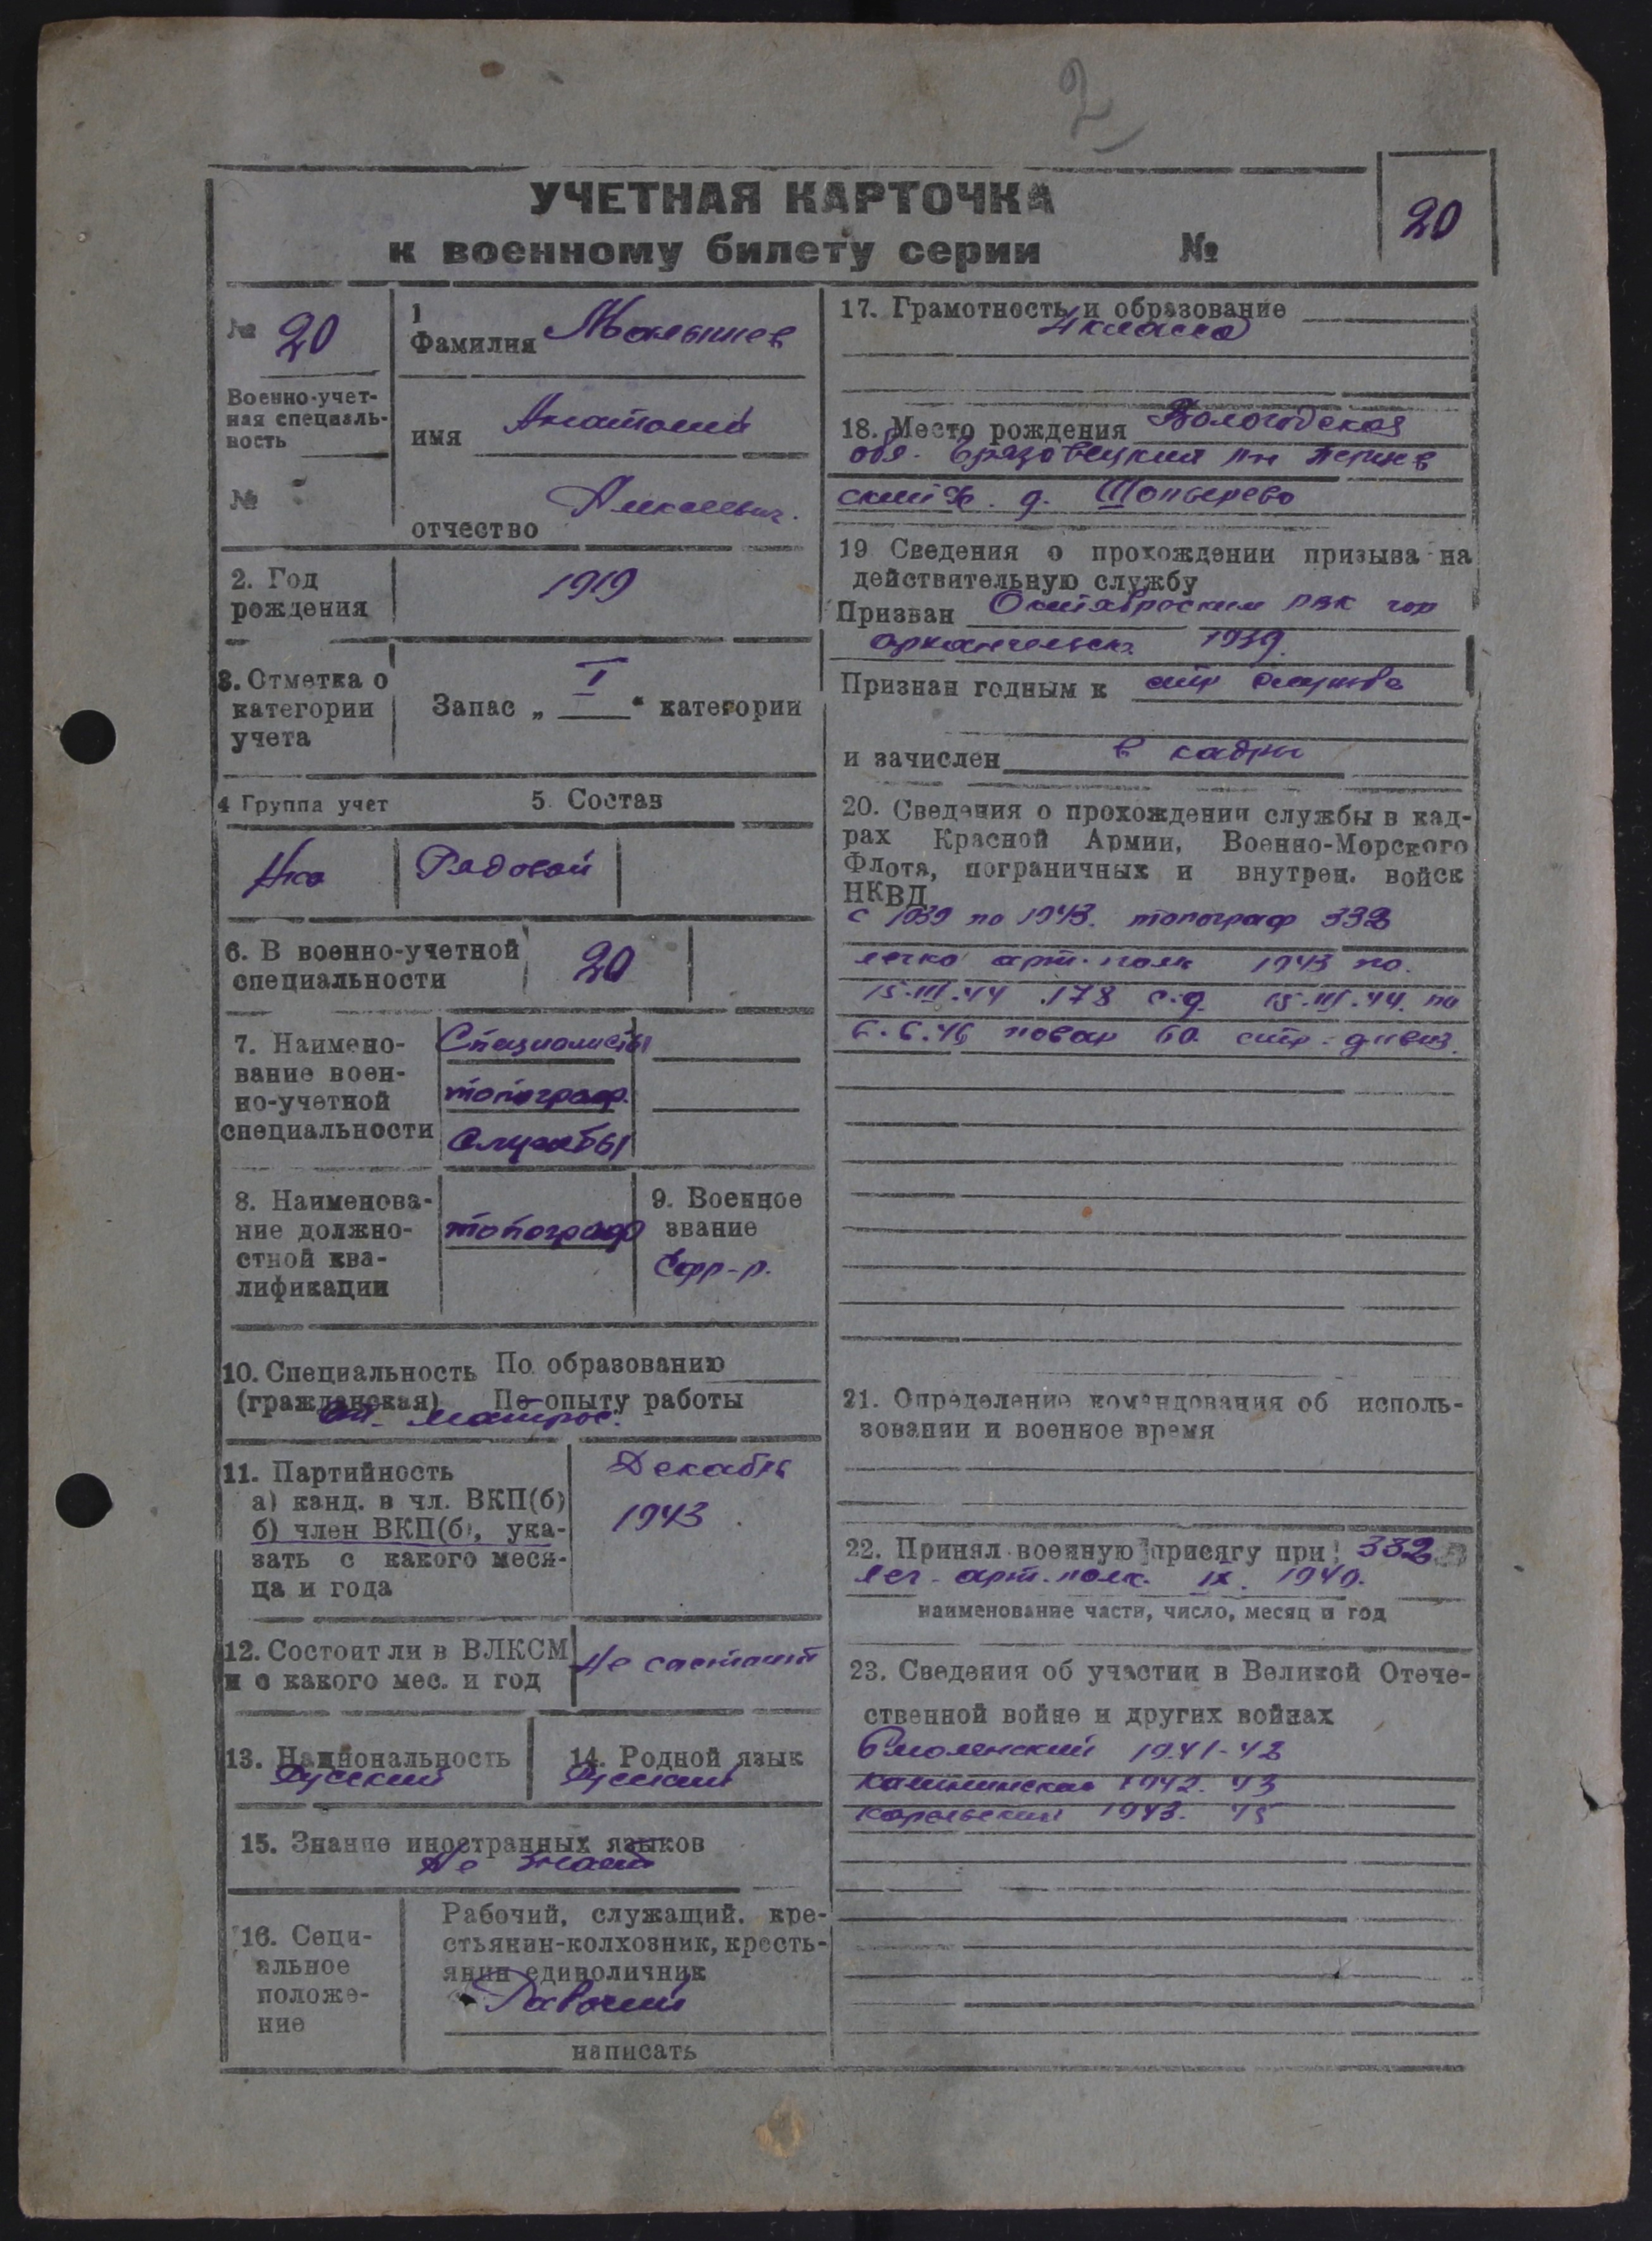 2
УЧЕТНАЯ КАРТОЧКА
к военному билету серии №
20
№ 20
Военно-учет-
ная специаль-
ность
№
1
Фамилия Малышев
имя Анатолий
отчество Алексеевич.
2. Год
рождения
1919
3. Отметка о
категории
учета
Запас „ I “ категории
4 Группа учет
5. Состав
Рядовой
6. В военно-учетной
специальности
20
7. Наимено-
вание воен-
но-учетной
специальности
Специалисты
топограф.
службы
8. Наименова-
ние должно-
стной ква-
лификации
топограф
9. Военное
звание
Ефр-р.
10. Специальность По образованию
(гражданская) По опыту работы
матрос.
11. Партийность
а) канд. в чл. ВКП(б)
б) член ВКП(б), ука-
зать с какого меся-
ца и года
Декабрь
1943.
12. Состоит ли в ВЛКСМ
и с какого мес. и год
Не состоит
13. Национальность
Русский
14. Родной язык
Русский
15. Знание иностранных языков
Не знает
16. Соци-
альное
положе-
ние
Рабочий, служащий, кре-
стьянин-колхозник, кресть-
янин единоличник
Рабочий
написать
17. Грамотность и образование
4 класса
18. Место рождения Вологодская
обл. Грязовецкий р-н
д.
19 Сведения о прохождении призыва на
действительную службу
Призван Октябрьским РВК гор
Архангельск 1939.
Признан годным к стр службе
и зачислен в кадры
20. Сведения о прохождении службы в кад-
рах Красной Армии, Военно-Морского
Флота, пограничных и внутрен. войск
НКВД
с 1939 по 1943. топограф 332
легко арт. полк 1943 по.
15.III.44 178 с.д. 15.III.44. по
6.6.46 повар 60 стр. дивиз.
21. Определение командования об исполь-
зовании и военное время
22. Принял военную присягу при 332
лег. арт. полк. IX. 1940.
наименование части, число, месяц и год
23. Сведения об участии в Великой Отече-
ственной войне и других войнах
Смоленский 1941-42
Калининская 1942. 43
Карельский 1943. 45